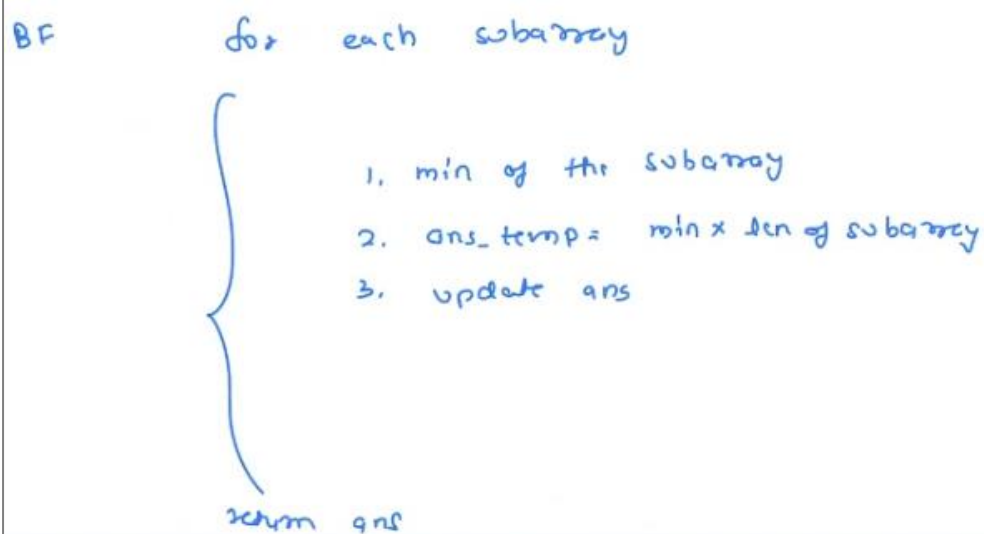 BF for each subarray
1. min of the subarray
2. ans_temp = min x len of subarray
3. update ans
return ans